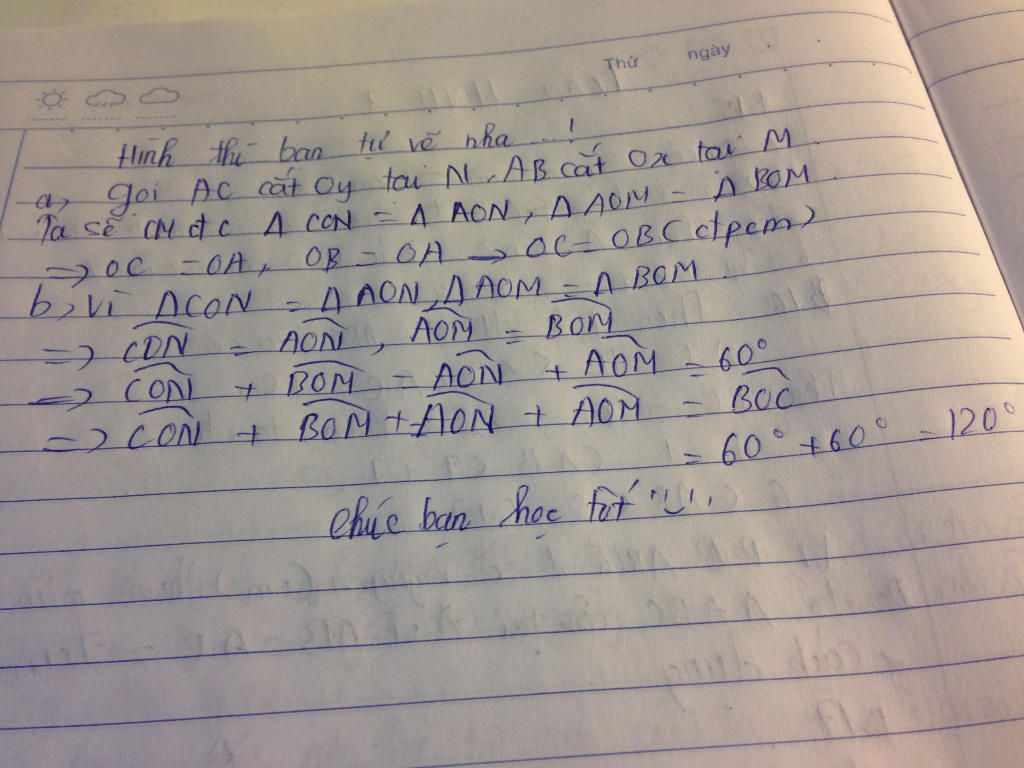 Thứ ngày
Hình thì bạn tự vẽ nha...!
a, gọi AC cắt Oy tại N, AB cắt Ox tại M
Ta sẽ CM đc Δ CON = Δ AON, Δ AOM = Δ BOM
=> OC = OA, OB = OA → OC = OB (đpcm)
b, Vì ΔCON = Δ AON, Δ AOM = Δ BOM
=> CON = AON, AOM = BOM
=> CON + BOM = AON + AOM = 60°
=> CON + BOM + AON + AOM = BOC
= 60° + 60° = 120°
Chúc bạn học tốt